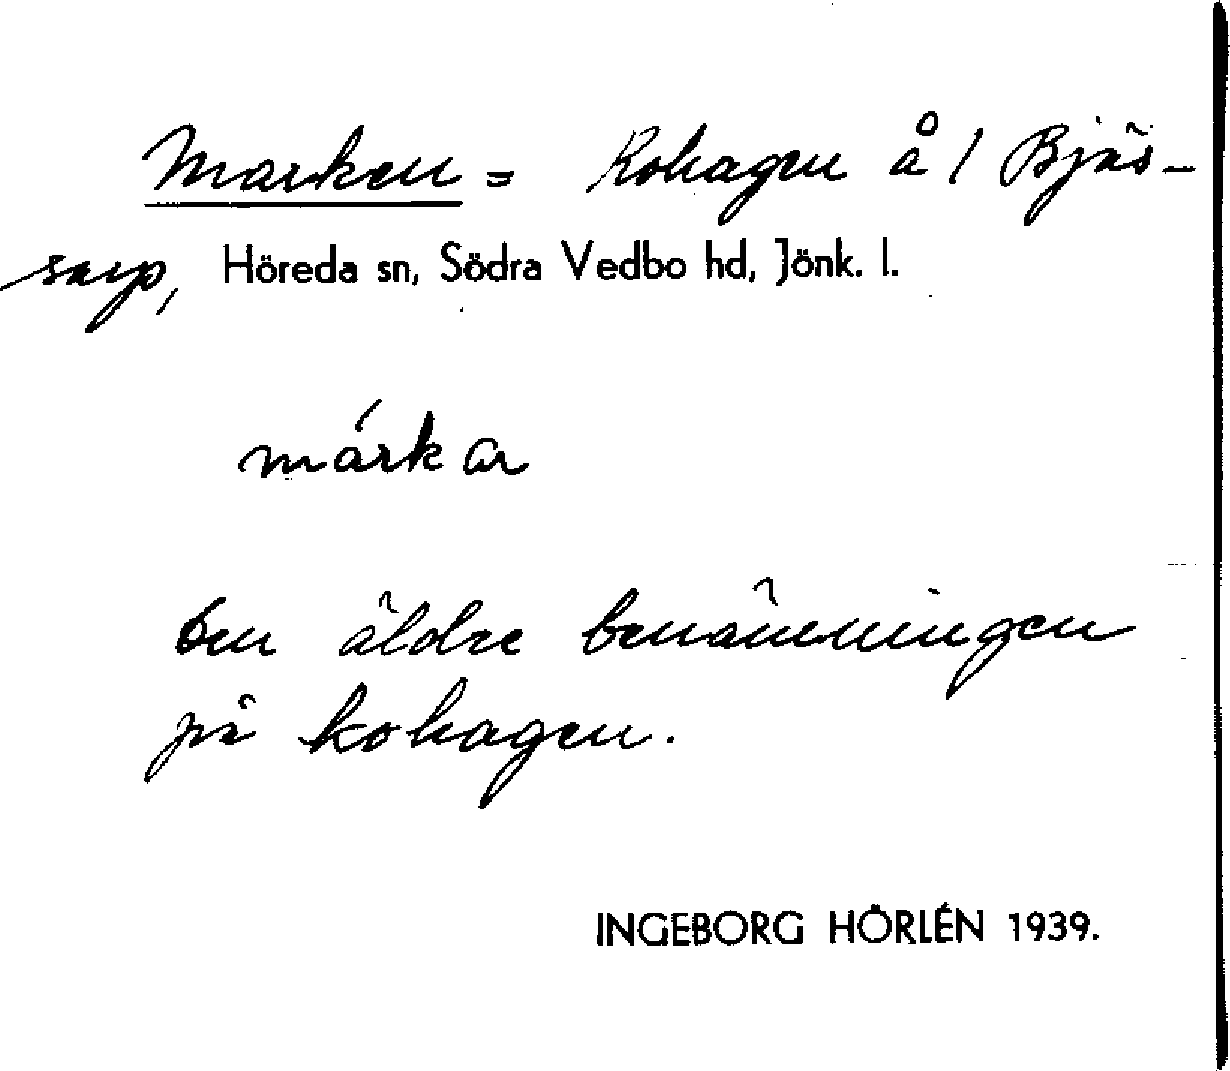 Marken = Kohagen å 1 Bjäs-
sarp, Höreda sn, Södra Vedbo hd, Jönk. l.
márkan
Den äldre benämningen
på kohagen.
INGEBORG HÖRLÉN 1939.